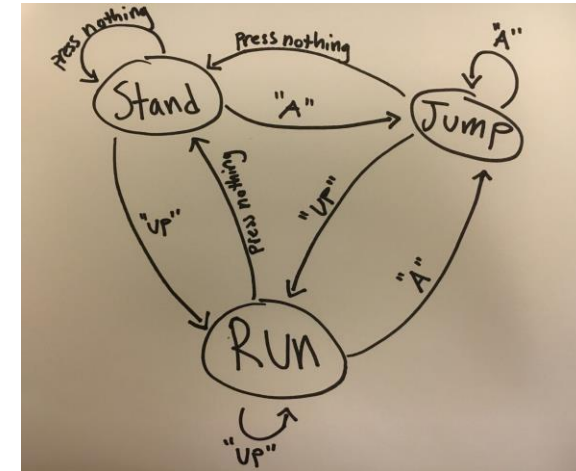 Press nothing
Press nothing
"A"
Stand
"A"
Jump
"UP"
Press nothing
"UP"
"A"
RUn
"UP"